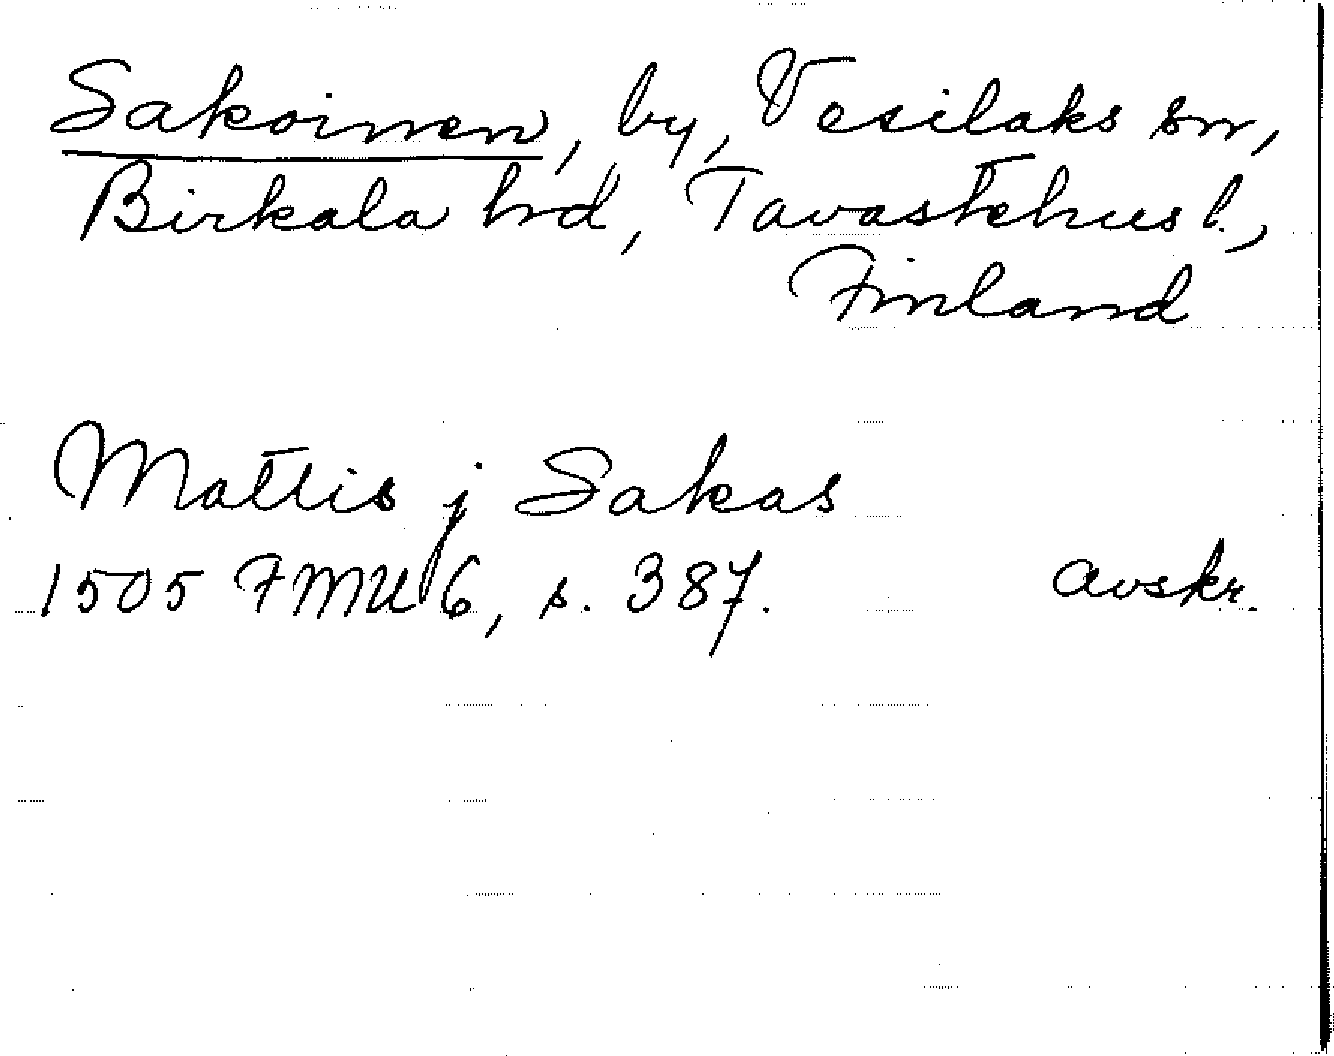 Sakoinen, by, Vesilaks sn,
Birkala hd, Tavastehus l.,
Finland
Mattis j Sakas
1505 FMU 6, s. 387. avskr.